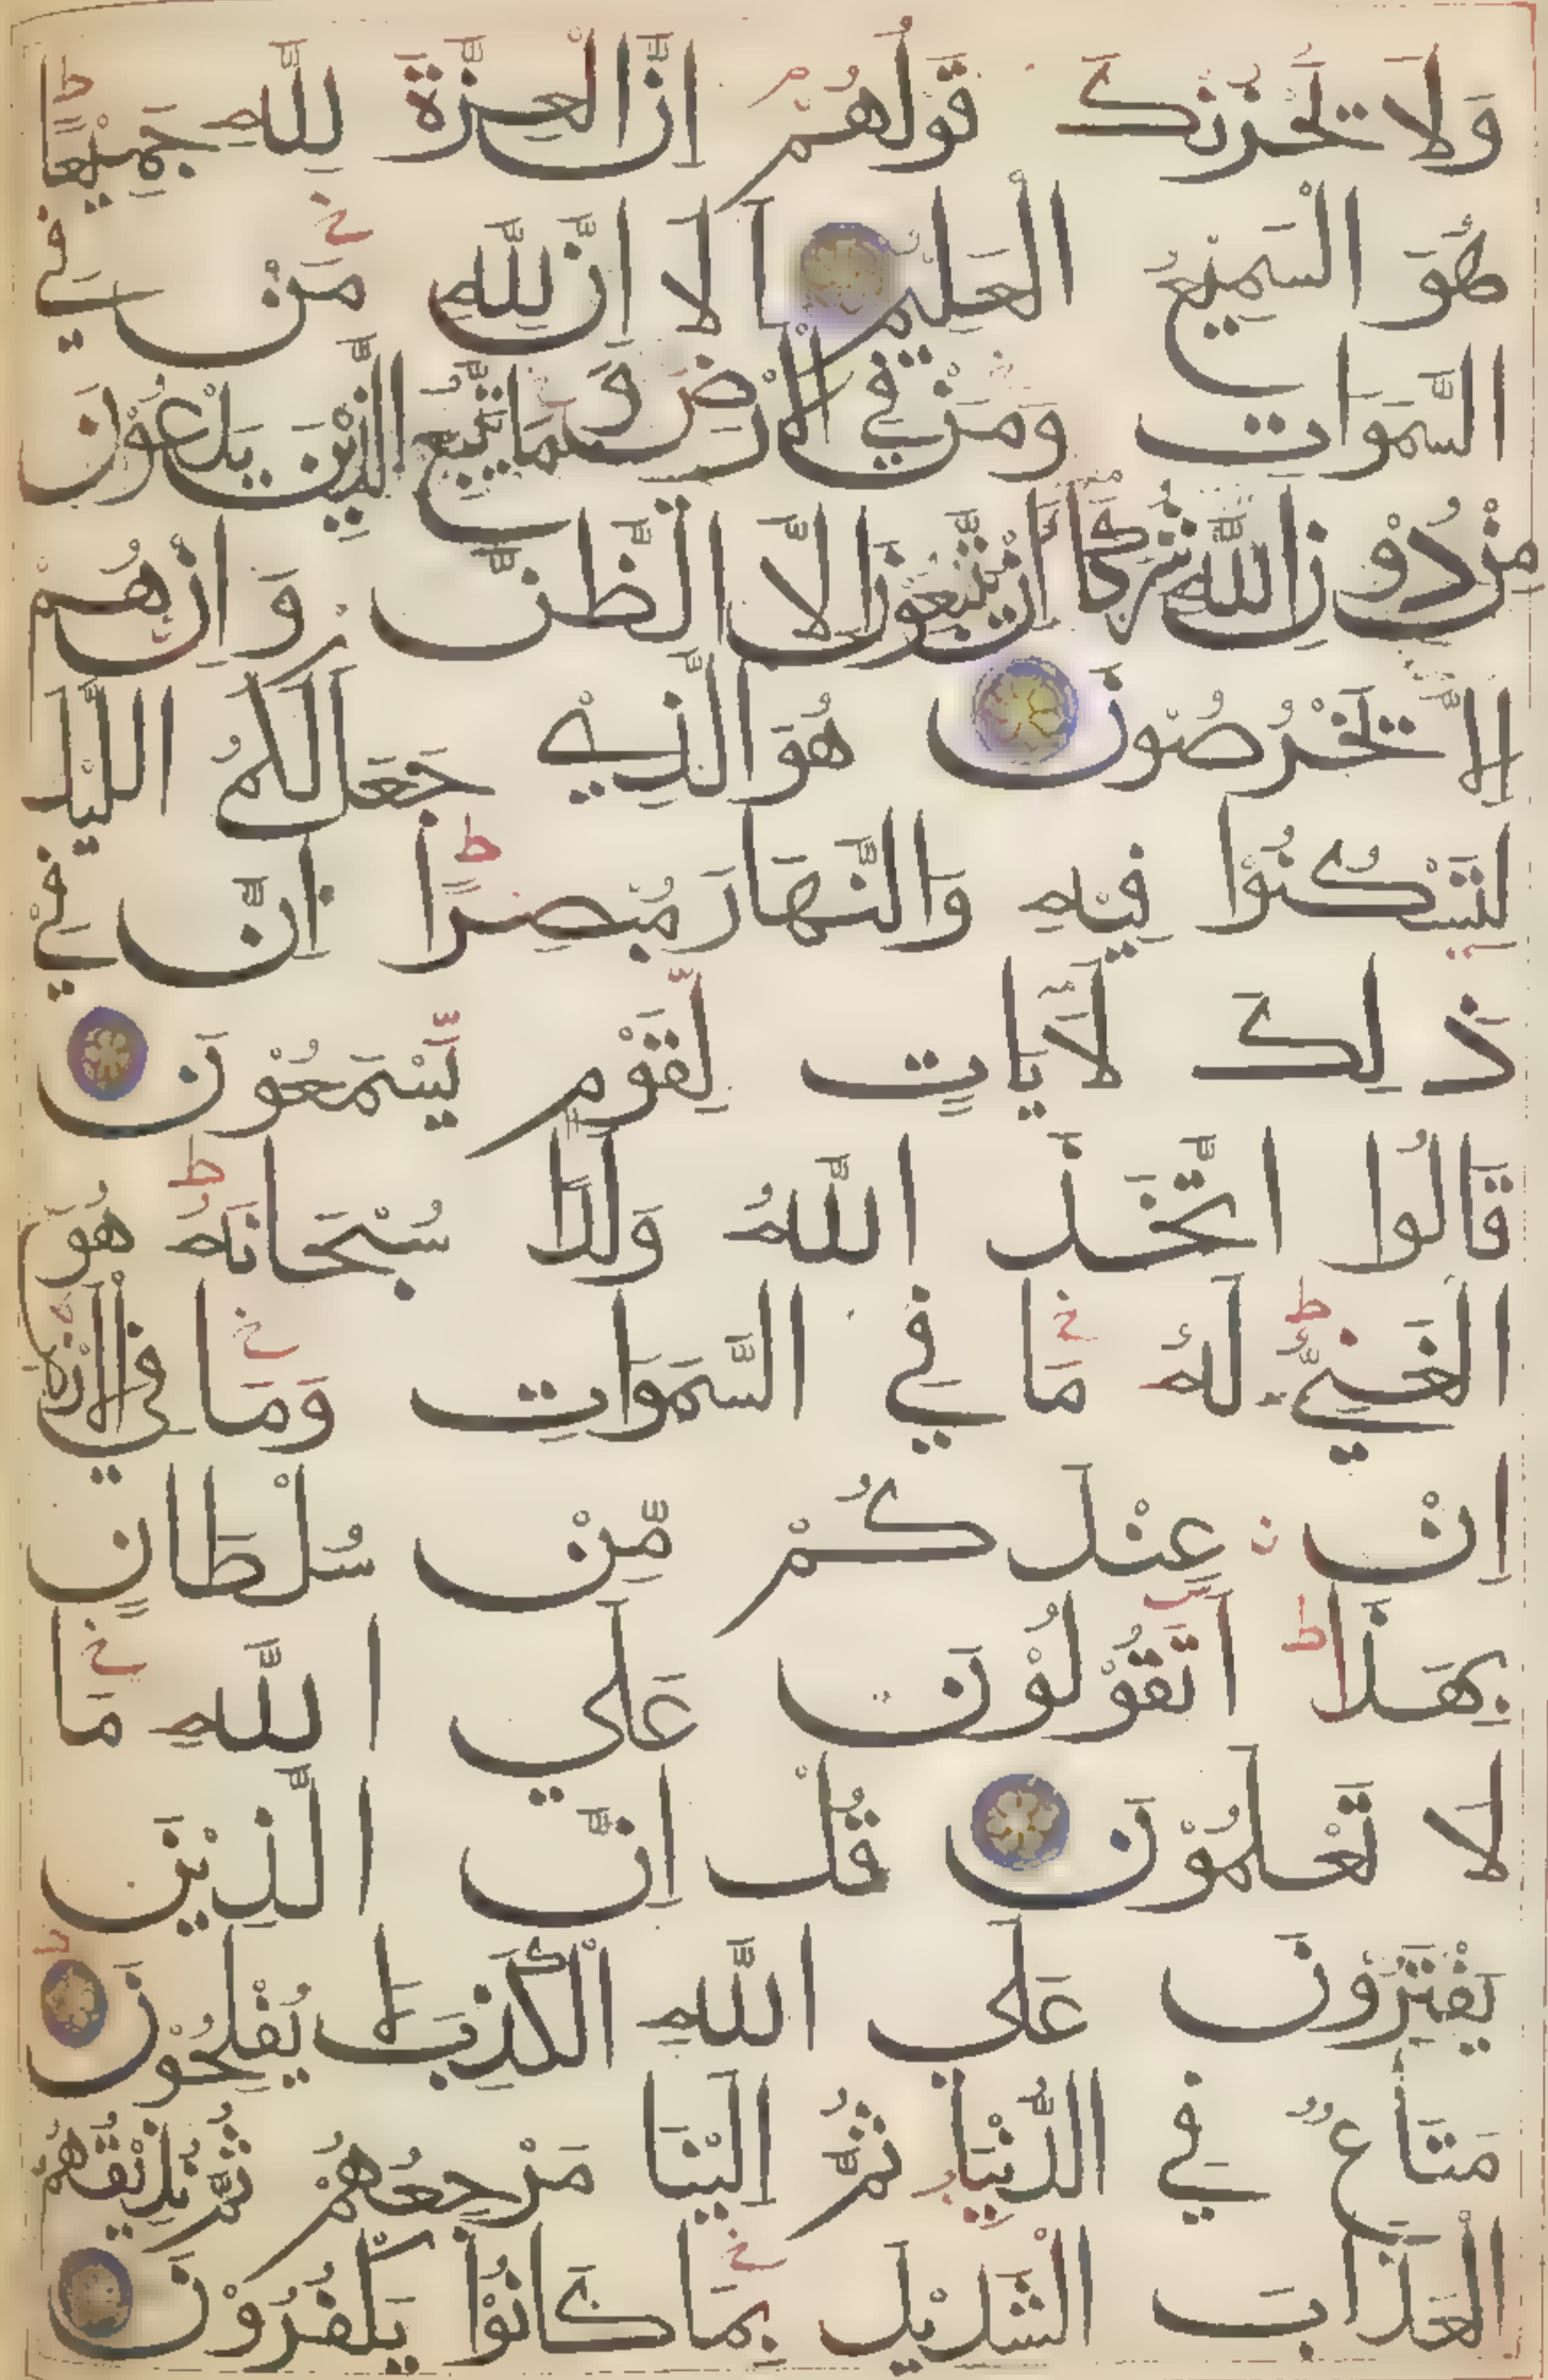 وَلَا يَحْزُنْكَ قَوْلُهُمْ اِنَّ الْعِزَّةَ لِلّٰهِ جَمِيْعًا
هُوَ السَّمِيْعُ الْعَلِيْمُ اَلَا اِنَّ لِلّٰهِ مَنْ فِي
السَّمٰوَاتِ وَمَنْ فِي الْاَرْضِ وَمَا يَتَّبِعُ الَّذِيْنَ يَدْعُوْنَ
مِنْ دُوْنِ اللّٰهِ شُرَكَاءَ اِنْ يَتَّبِعُوْنَ اِلَّا الظَّنَّ وَاِنْ هُمْ
اِلَّا يَخْرُصُوْنَ هُوَ الَّذِيْ جَعَلَ لَكُمُ اللَّيْلَ
لِتَسْكُنُوْا فِيْهِ وَالنَّهَارَ مُبْصِرًا اِنَّ فِيْ
ذٰلِكَ لَاٰيَاتٍ لِّقَوْمٍ يَّسْمَعُوْنَ
قَالُوا اتَّخَذَ اللّٰهُ وَلَدًا سُبْحَانَهُ هُوَ
الْغَنِيُّ لَهُ مَا فِي السَّمٰوَاتِ وَمَا فِي الْاَرْضِ
اِنْ عِنْدَكُمْ مِّنْ سُلْطَانٍ
بِهَذَا اَتَقُوْلُوْنَ عَلَي اللّٰهِ مَا
لَا تَعْلَمُوْنَ قُلْ اِنَّ الَّذِيْنَ
يَفْتَرُوْنَ عَلَي اللّٰهِ الْكَذِبَ لَا يُفْلِحُوْنَ
مَتَاعٌ فِي الدُّنْيَا ثُمَّ اِلَيْنَا مَرْجِعُهُمْ ثُمَّ نُذِيْقُهُمُ
الْعَذَابَ الشَّدِيْدَ بِمَا كَانُوْا يَكْفُرُوْنَ